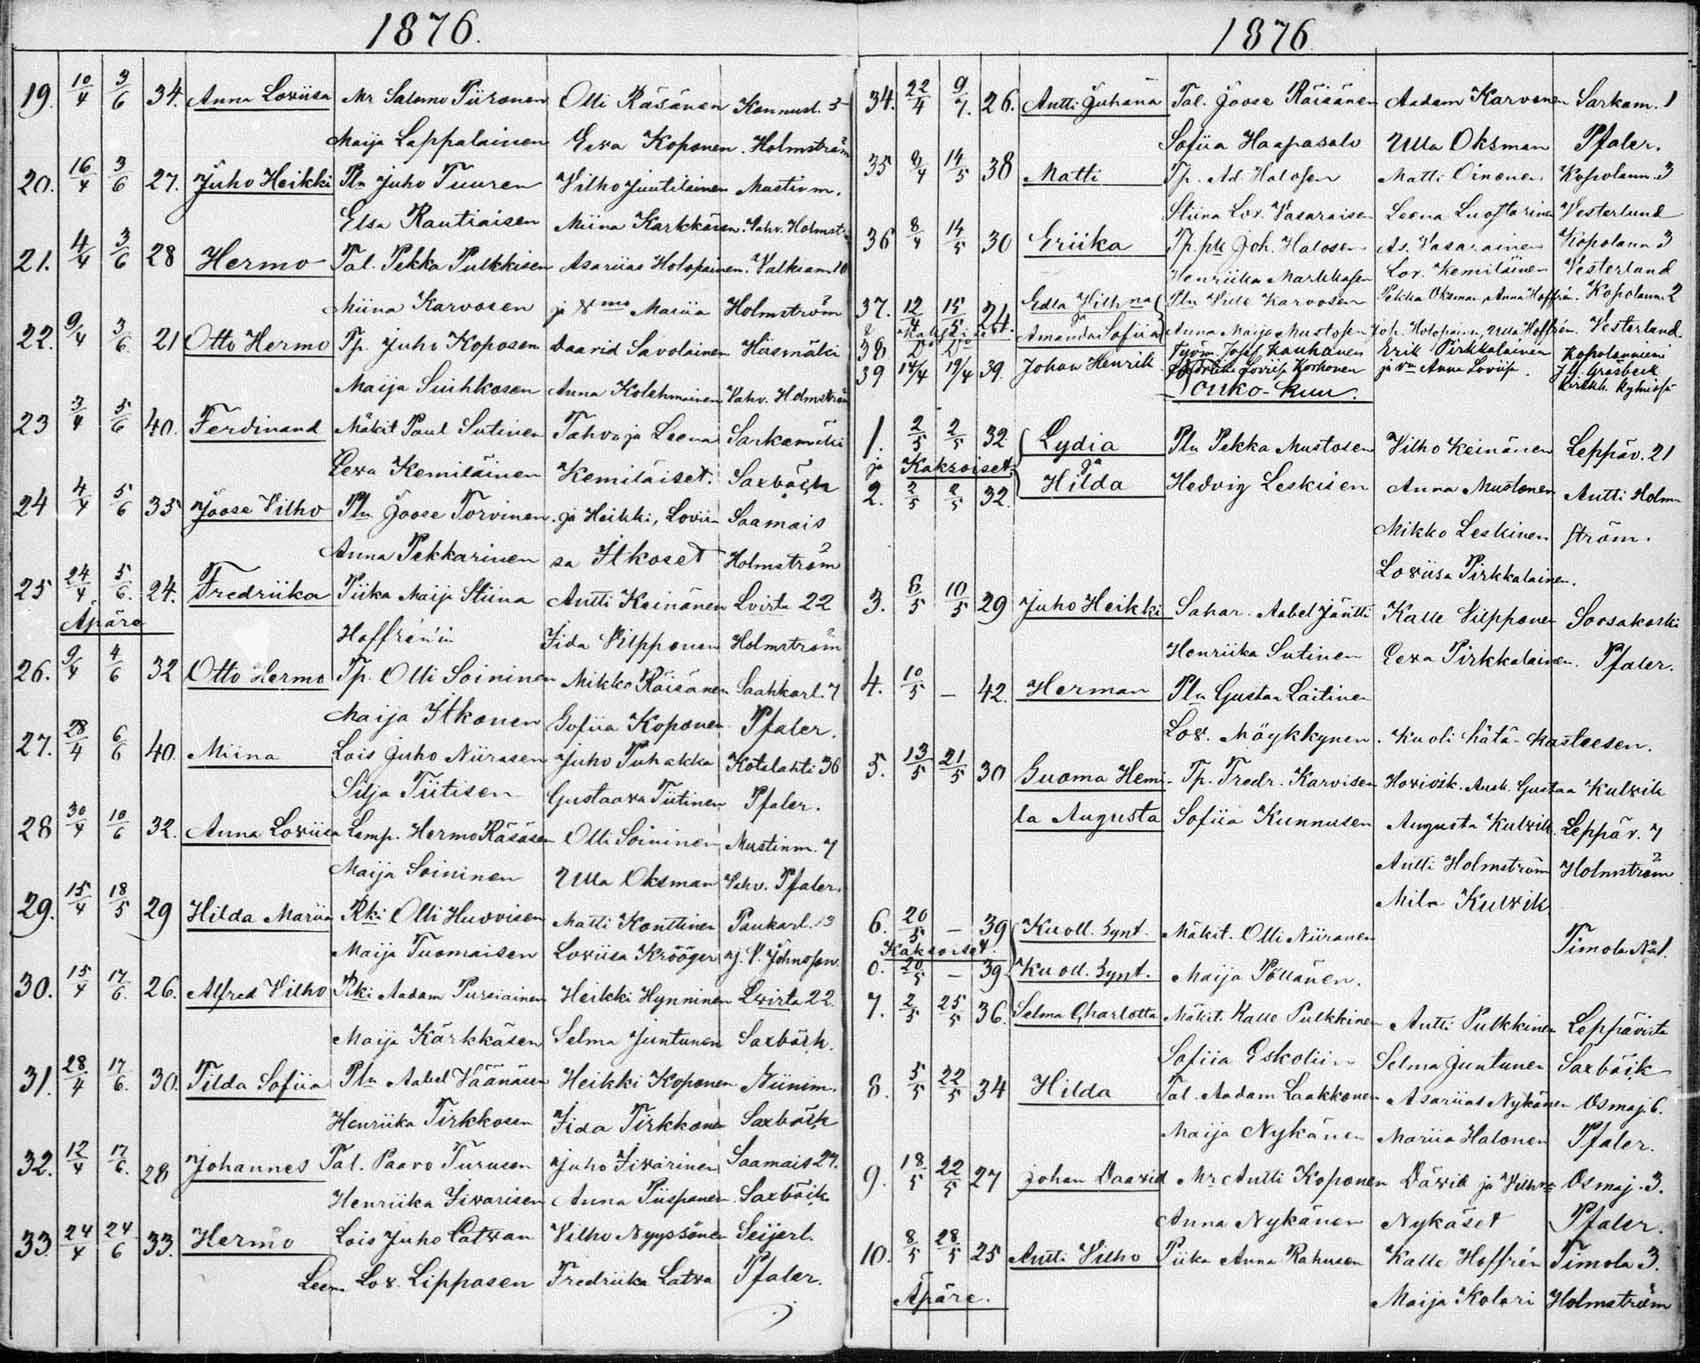 1876.
19. 10/4 3/6 34. Anna Loviisa Mr Salomo Piironen Olli Räsänen Kannusl. 5
Maija Lappalainen Eeva Koponen. Holmström
20. 16/4 3/6 27. Juho Heikki Pln Juho Tuuren Vilho Juutilainen Mustinm.
Elsa Rautiaisen Miina Karkkäsen. Vahv. Holmst
21. 4/4 3/6 28 Hermo Tal. Pekka Pulkkisen Asarias Holopainen. Valkiam. 10
Miina Karvosen ja vmo Mariia Holmström
22. 9/4 3/6 21 Otto Hermo Tp. Juho Koposen Daavid Savolainen Häsmälä
Maija Sinhkosen Anna Kolehmainen Vahv. Holmström
23 3/4 5/6 40. Ferdinand Mäkit Paul Sutinen Tahvo ja Leena Sarkamäki
Eeva Kemiläinen Kemiläiset. Saxbäck
24 4/4 5/6 35 Joose Vilho Pln Joose Torvinen. ja Heikki, Lovii Saamais
Anna Pekkarinen sa Itkoset Holmström
25 24/4 5/6. 24. Fredriika Piika Maija Stiina Antti Keinänen Lvirta 22
Apärä Hoffrén'in Iida Vilpponen Holmström
26. 9/4 4/6 32 Otto Hermo Tp. Olli Soininen Mikko Räisänen Saahkarl. 7
Maija Itkonen Sofiia Koponen Pfaler.
27. 28/4 6/6 40. Miina Lois Juho Niirasen Juho Puhakka Kotalahti 36
Silja Tiitisen Gustaava Tiitinen Pfaler.
28 30/4 10/6 32. Anna Loviisa Lamp. Hermo Räsäsen Olli Soininen Mustinm. 7
Maija Soininen Ulla Oksman Vahv. Pfaler.
29. 15/4 18/5 29 Hilda Mariia Rki Olli Huovisen Matti Konttinen Paukarl. 13
Maija Tuomaisen Loviisa Krööger J. V. Johnsson.
30. 15/4 17/6. 26. Alfred Vilho Rki Aadam Pursiainen Heikki Hynninen Lvirta 22.
Maija Kärkkäsen Selma Juntunen Saxbäck.
31. 28/4 17/6. 30. Tilda Sofiia Pln Aabel Väänäsen Heikki Koponen Niinim.
Henriika Tirkkosen Iida Tirkkonen Saxbäck
32. 12/4 17/6. 28 Johannes Tal. Paavo Turusen Juho Iivarinen Saamais 27.
Henriika Iivarisen Anna Piisponen Saxbäck
33. 24/4 24/6 33. Hermo Lois Juho Latvan Vilho Nyyssönen Seijerl.
Leen Lov. Lipposen Fredriika Latva Pfaler.
1876
34. 22/4 9/7. 26. Antti Juhana Tal. Joose Räisänen Aadam Karvonen Sarkam. 1
Sofiia Haapasalo Ulla Oksman Pfaler.
35 9/4 14/5 38 Matti Tp. Ad. Halosen Matti Oinonen Kopolanm. 3
Stiina Lov. Vasaraisen Leena Luostarinen Vesterlund
36 8/4 14/5 30 Eriika Tp. Joh. Halosen As. Vasarainen Kopolanm 3
Henriika Markkasen Lov. Kemiläinen Vesterlund
37. 12/4 15/5 24. Edla Vilhna Pln Ville Karvosen Pekka Oksman, Anna Hoffrén. Kopolanm. 2
38 Amanda Sofiia Anna Maija Mustosen Joh. Holopainen, Ulla Hoffrén. Vesterlund.
39 14/4 19/4 39. Johan Henrik Työm. Josef Kauhanen Erik Pirkkalainen Kopolanniemi
Loviisa Korhonen ja vm Anna Loviisa. J. H. Gråsbeck
Touko-kuu. Kirkkh. kylmissä
1. 2/5 2/5 32 Lydia Pln Pekka Mustosen Vilho Keinänen Leppäv. 21
ja Kaksoiset ja
2. 2/5 2/5 32. Hilda Hedvig Leskisen Anna Mustonen Antti Holm
Mikko Leskinen ström.
Loviisa Pirkkalainen.
3. 6/5 10/5 29 Juho Heikki Sahar. Aabel Jäntti Kalle Vilpponen Soosakoski
Henriika Sutinen Eeva Pirkkalainen. Pfaler.
4. 10/5 — 42. Herman Pln Gustav Laitinen
Lov. Möykkynen. Kuoli hätä-kasteesen.
5. 13/5 21/5 30 Guoma Hemi- Tp. Fredr. Karvisen Hovivik. Ausk. Gustaa Kulvik
la Augusta Sofiia Kunnusen Augusta Kulvik Leppäv. 7
Antti Holmström Holmström
Mila Kulvik
6. 20/5 — 39 Kuoll. Synt. Mäkit. Olli Niiranen Timola N:o 1.
Kaksoiset
0. 20/5 — 39 Kuoll. Synt. Maija Pöllänen.
7. 2/5 25/5 36. Selma Charlotta Mäkit. Kalle Pulkkinen Antti Pulkkinen Leppävirta
Sofiia Eskolin Selma Juntunen Saxbäck
8. 5/5 22/5 34 Hilda Tal. Aadam Laakkonen Asarias Nykänen Osmaj. 6.
Maija Nykänen Mariia Halonen Pfaler.
9. 18/5 22/5 27 Johan Daavid Mr Antti Koponen Dävid ja Vilhna Osmaj. 3.
Anna Nykänen Nykäset Pfaler.
10. 8/5 28/5 25 Antti Vilho Piika Anna Rahusen Kalle Hoffrén Timola 3.
Apärä. Maija Kolari Holmström